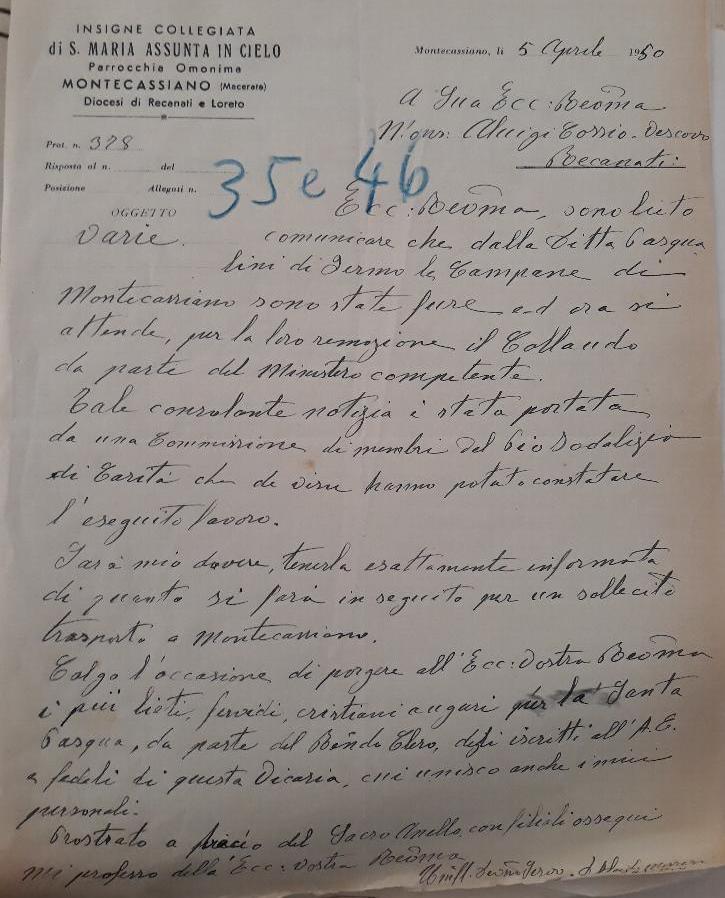 INSIGNE COLLEGIATA
di S. MARIA ASSUNTA IN CIELO
Parrocchia Omonima
MONTECASSIANO (Macerata)
Diocesi di Recanati e Loreto
Montecassiano, li 5 Aprile 1950
A Sua Ecc: Rev̄ma
M'gnr: Aluigi Cossio - Vescovo
Recanati:
Prot. n. 328
Risposta al n. del
Posizione Allegati n.
35 e 46
OGGETTO
Varie.
Ecc: Rev̄ma, sono lieto
comunicare che dalla Ditta Pasqua
lini di Fermo le Campane di
Montecassiano sono state fuse ed ora si
attende, per la loro remozione il Collaudo
da parte del Ministero competente.
Tale consolante notizia è stata portata
da una Commissione di membri del Pio Sodalizio
di Carità che de visu hanno potuto constatare
l'eseguito lavoro.
Sarà mio dovere, tenerla esattamente informata
di quanto si farà in seguito per un sollecito
trasporto a Montecassiano.
Colgo l'occasione di porgere all'Ecc: Vostra Rev̄ma
i più lieti, fervidi, cristiani auguri per la Santa
Pasqua, da parte del Rendo Clero, degli iscritti all'A.C.
e fedeli di questa Vicaria, cui unisco anche i miei
personali.
Prostrato a bacio del Sacro Anello, con filiali ossequi
mi professo della Ecc: Vostra Rev̄ma
Umil.